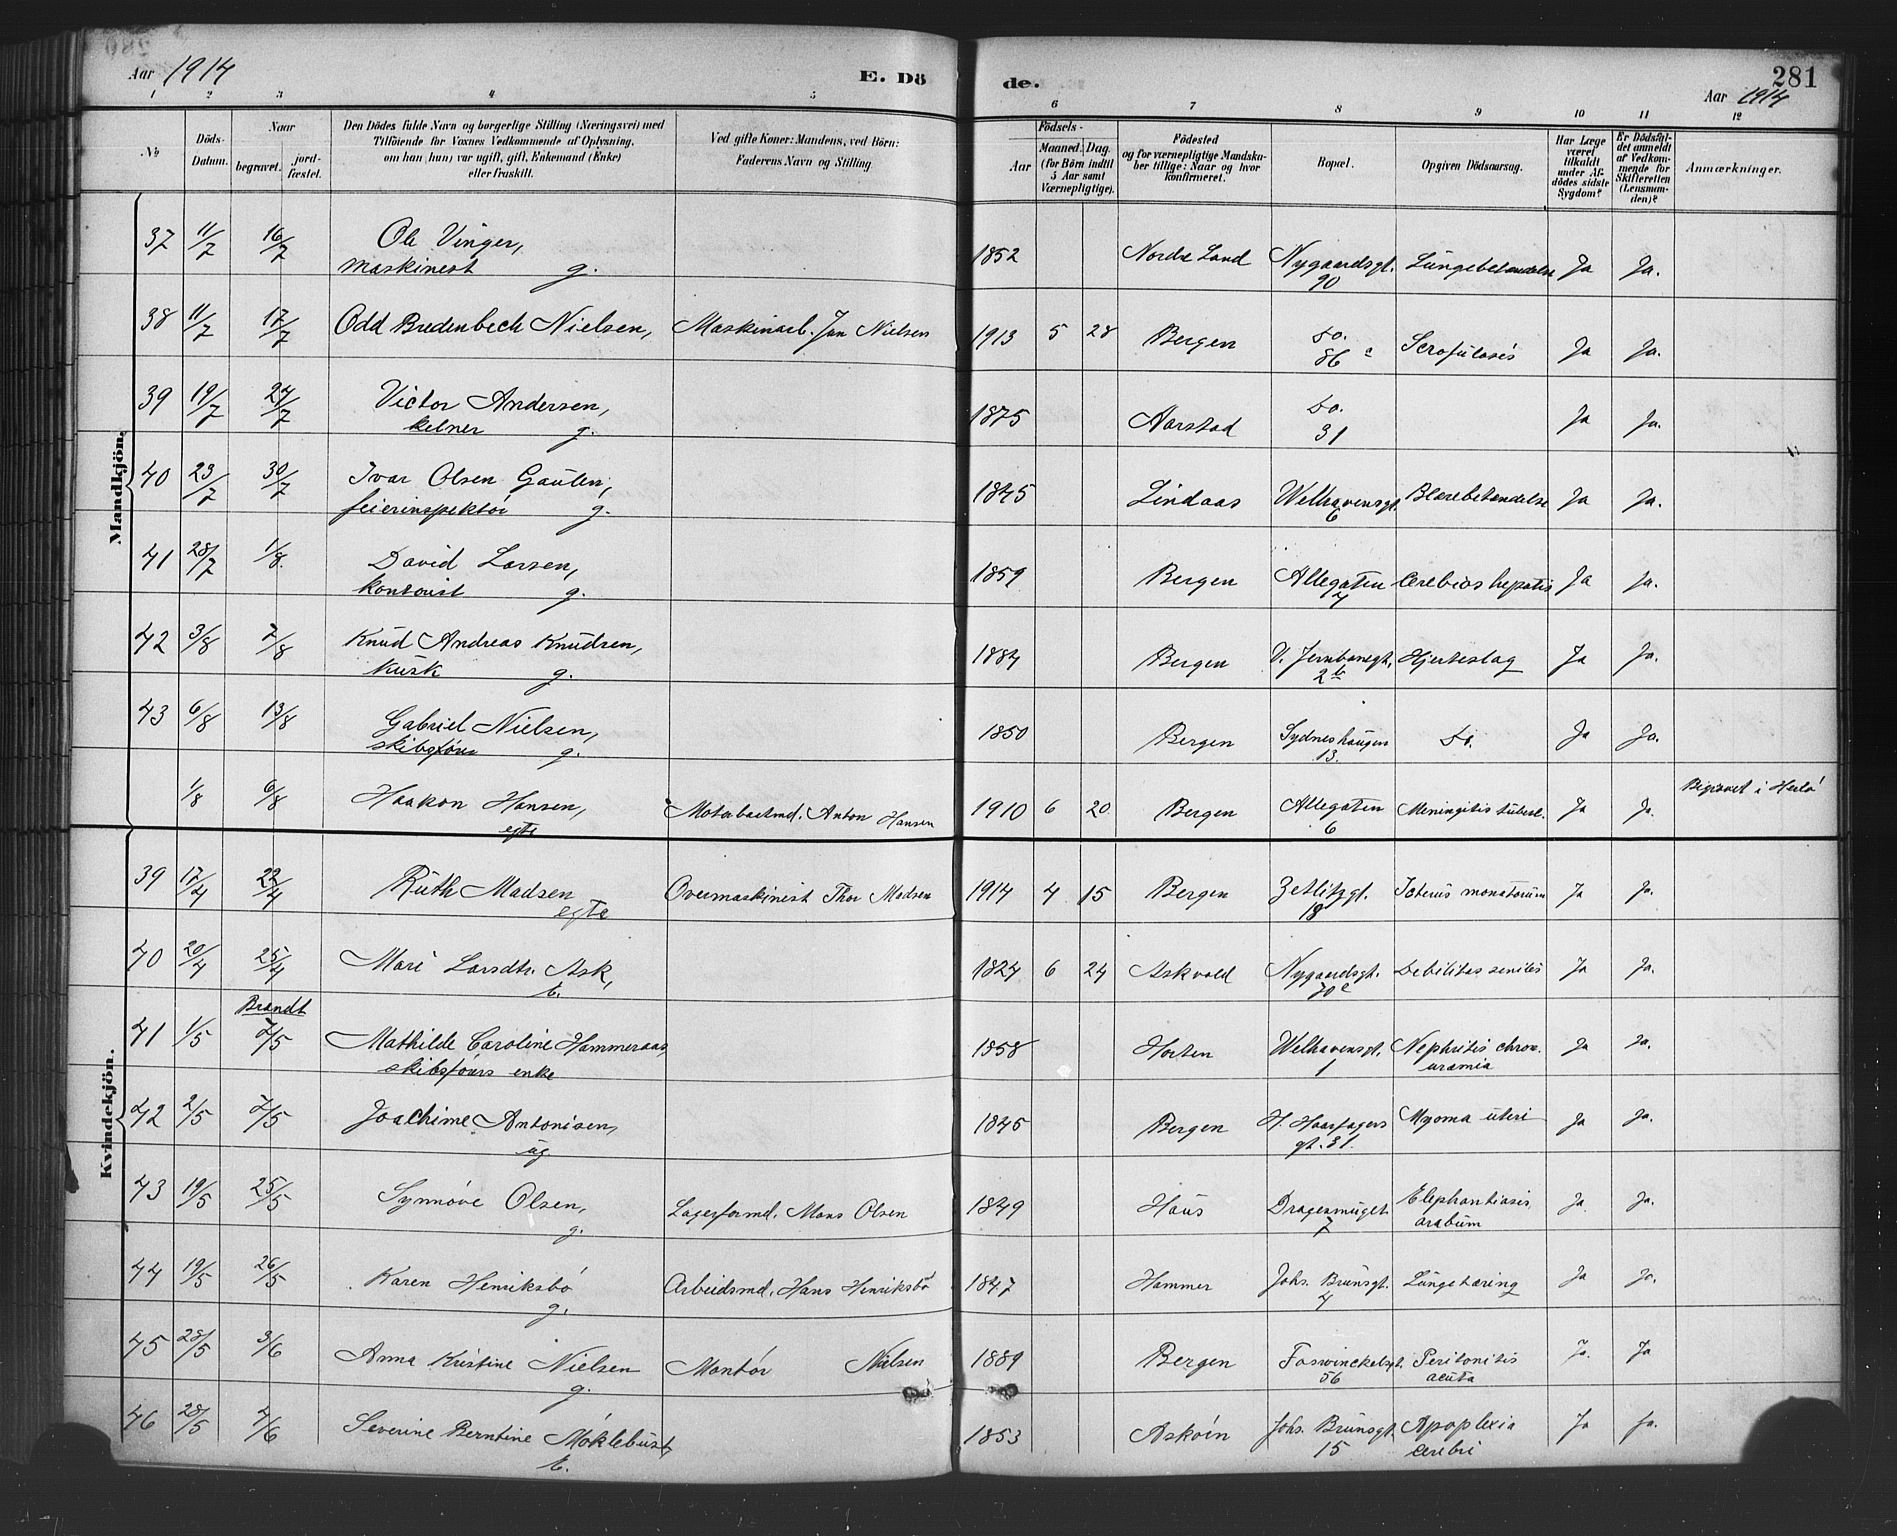 Aar 1914 E. Dö de. 281
Aar 1914
1 2 3 4 5 6 7 8 9 10 11 12
No Döds-Datum. Naar begravet. jord-fæstet. Den Dödes fulde Navn og borgerlige Stilling (Næringsvei) med Tilföiende for Voxnes Vedkommende af Oplysning, om han (hun) var ugift, gift, Enkemand (Enke) eller fraskilt. Ved gifte Koner: Mandens, ved Börn: Faderens Navn og Stilling. Födsels- Aar Maaned. Dag. (for Börn indtil 5 Aar samt Værnepligtige). Födested og for værnepligtige Mandskaber tillige: Naar og hvor konfirmeret. Bopæl. Opgiven Dödsaarsag. Har Læge været tilkaldt under Afdödes sidste Sygdom? Er Dödsfaldet anmeldt af Vedkommende for Skifteretten (Lensmanden)? Anmærkninger.
Mandkjön.
37 11/7 16/7 Ole Vinger, 1852 Nordre Land Nygaardsgt. Lungebetændelse Ja Ja.
maskinest g. 90
38 11/7 17/7 Odd Bredenbech Nielsen, Maskinarb. Jan Nielsen 1913 5 28 Bergen Do. Scrofulosis Ja Ja.
86 c
39 19/7 24/7 Victor Andersen, 1875 Aarstad Do. Ja Ja.
kelner g. 31
40 23/7 30/7 Ivar Olsen Gaulen, 1845 Lindaas Welhavensgt. Blærebetændelse Ja Ja.
feierinspektör g. 6
41 28/7 1/8. David Larsen, 1859 Bergen Allegaten hepatis Ja Ja.
kontorist g. 7
42 3/8 7/8 Knud Andreas Knudsen, 1884 Bergen V. Jernbanegt. Hjerteslag Ja Ja.
kusk g. 2 b
43 6/8 13/8 Gabriel Nielsen, 1850 Bergen Sydneshaugen Do. Ja Ja.
skibsförer g. 13.
1/8 6/8 Haakon Hansen, Motorbaatmd. Anton Hansen 1910 6 20 Bergen Allegaten Meningitis tubercl. Ja Ja. Begravet i Herlö
egte 6
Kvindekjön.
39 17/4 22/4 Ruth Madsen Overmaskinist Thor Madsen 1914 4 15 Bergen Zetlitzgt. Icterus Ja Ja.
egte 18
40 20/4 25/4 Mari Larsdtr. Ask, 1824 6 24 Askvold Nygaardsgt. Debilitas senilis Ja Ja.
E. 70 c
Brændt
41 1/5 7/5 Mathilde Caroline Hammeraas, 1858 Horten Welhavensgt. Nephritis chron. Ja Ja.
skibsförers enke 1 uræmia
42 2/5 7/5 Joachime Antonisen, 1845 Bergen H. Haarfagers Myoma uteri Ja Ja.
ug. gt. 31.
43 19/5 25/5 Synnöve Olsen, Lagerformd. Mons Olsen 1849 Haus Dragesmuget Elephantiasis Ja. Ja.
g. 7 arabum
44 19/5 26/5 Karen Henriksbö Arbeidsmd. Hans Henriksbö 1847 Hammer Johs. Brunsgt. Lungetæring Ja Ja.
g. 4
45 28/5 3/6 Anna Kristine Nielsen Montör Nielsen 1889 Bergen Foswinckelsgt. Peritonitis Ja. Ja
g. 56 acuta
46 28/5 4/6 Severine Berntine Möklebust, 1853 Asköin Johs. Brunsgt. Apoplexia Ja Ja.
E. 15 cerebri